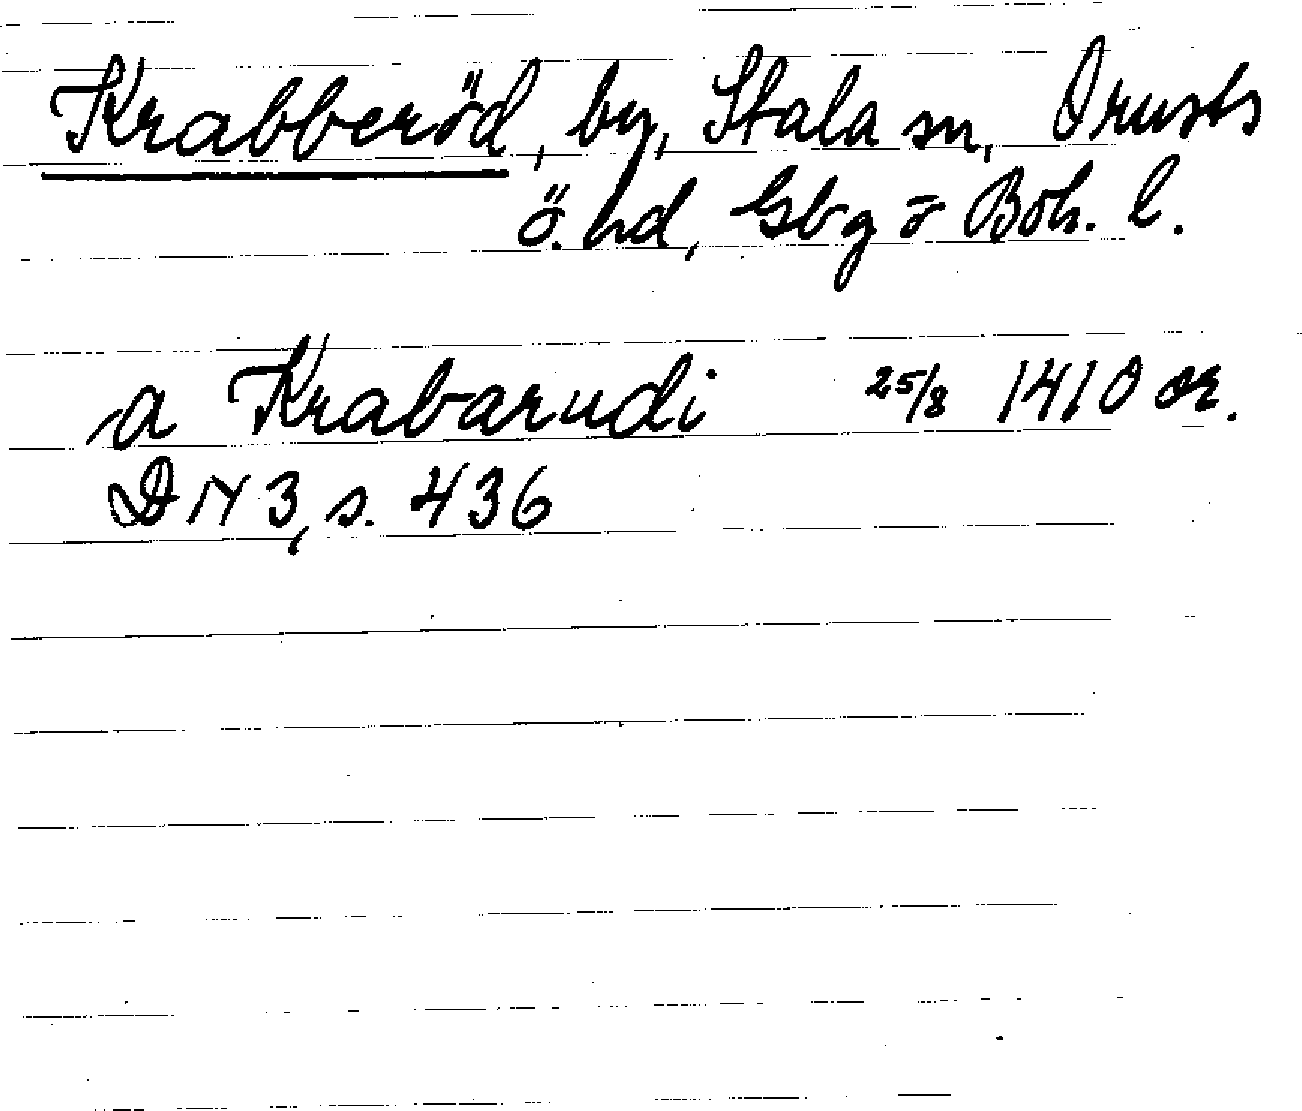 Krabberöd, by, Stala sn, Orusts
ö. hd, Gbg o Boh. l.
a Krabarudi 25/8 1410 or.
DN 3, s. 436